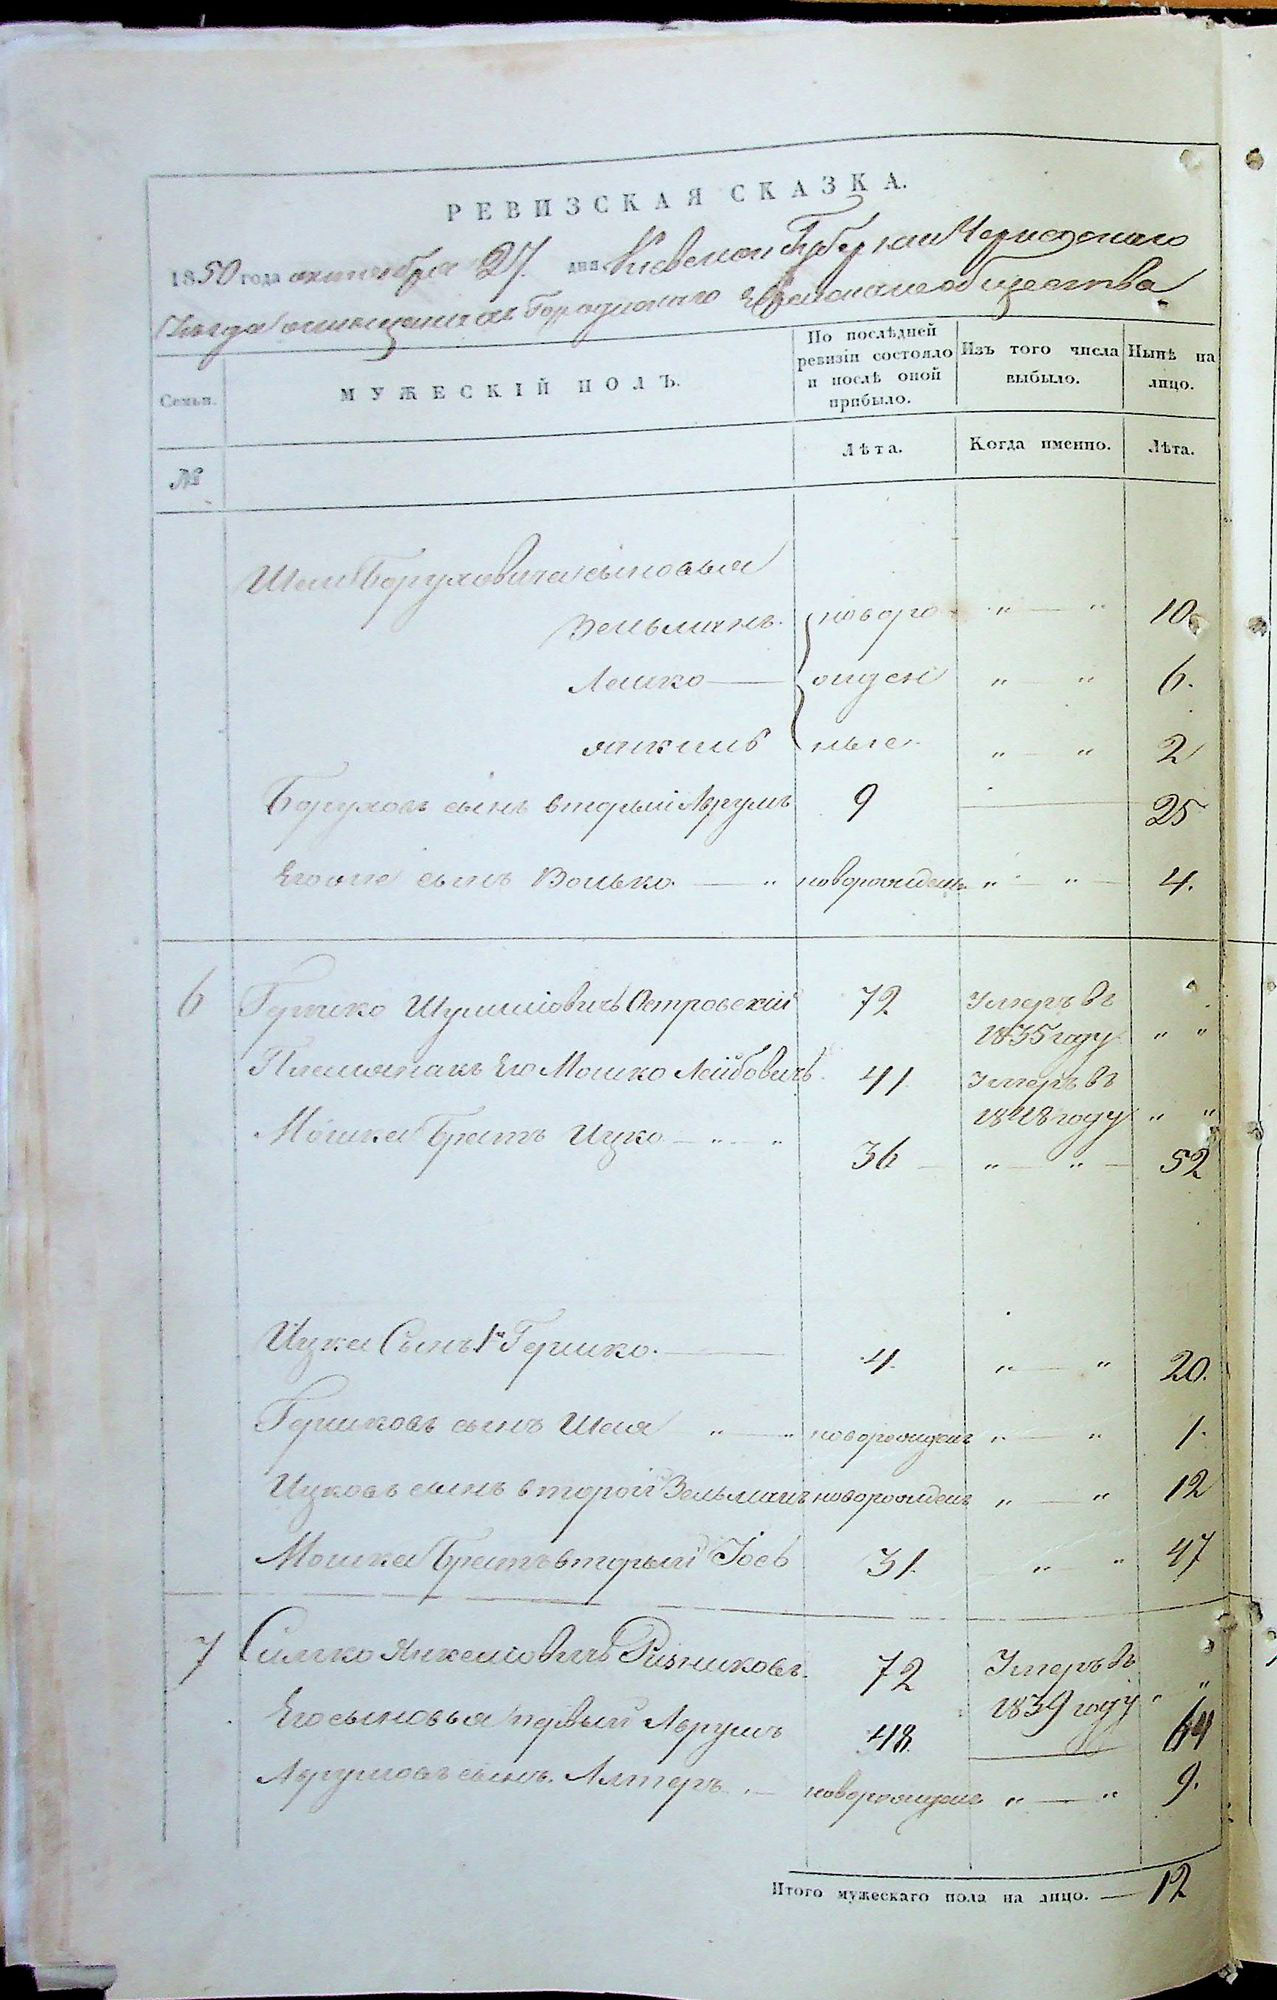 РЕВИЗСКАЯ СКАЗКА.
1850 года октября 27. дня Киевской Губернии Черкасскаго
Уезда мещанъ Городищскаго Еврейскаго общества
Семьи.
МУЖЕСКІЙ ПОЛЪ.
По послѣдней ревизіи состояло и послѣ оной прибыло.
Изъ того числа выбыло.
Нынѣ на лицо.
№
Лѣта.
Когда именно.
Лѣта.
Шеи Боруховича сыновья
Зельманъ. новоро " — " 10.
Лейко — жден " — " 6.
Янкель ные. " — " 2
Боруховъ сынъ вторый Аврумъ 9 25
Его же сынъ Волько. — " новорожденъ " — " — 4.
6 Гершко Шулимовичъ Островскій 72 Умеръ въ 1835 году " "
Племянникъ Его Мошко Лейбовичъ. 41 Умеръ въ 1848 году " "
Мошка братъ Ицко — " — " 36 — " — " — 52
Ицка Сынъ 1й Гершко. — 4. " — " 20.
Гершковъ сынъ Шая " — " новорожденъ " — " 1.
Ицковъ сынъ второй Зельманъ новорожденъ " — " 12
Мошка братъ вторый Іосъ 31. " — " 47
7 Симко Янкелиовичъ Ризниковъ. 72 Умеръ въ 1839 году " "
Его сыновья первый Аврумъ 48. 64
Аврумовъ сынъ. Алтеръ. — новорожденъ " — " 9.
Итого мужескаго пола на лицо. — 12